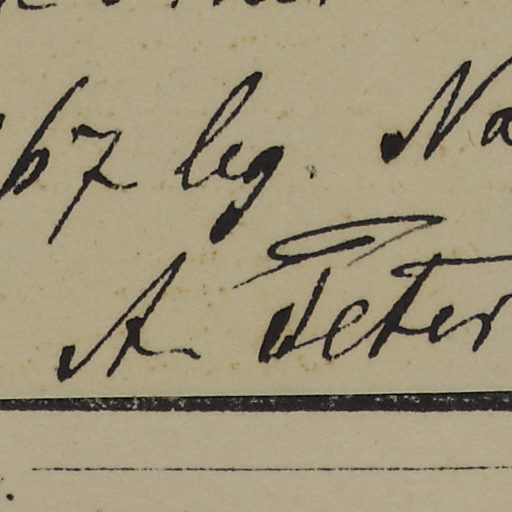 67 leg. Na
A. Peter